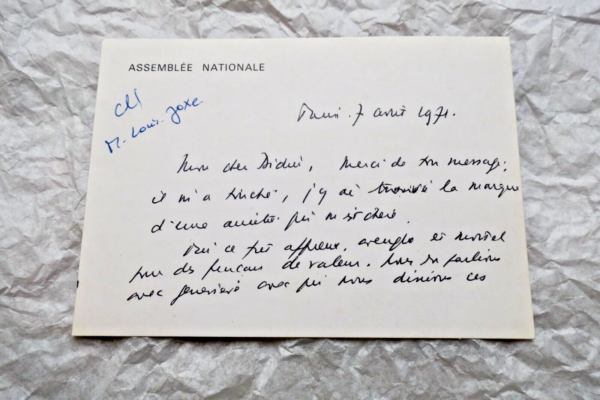 ASSEMBLÉE NATIONALE
M. Louis Joxe
Paris. 7 avril 1971.
Mon cher Didier, Merci de ton message;
il m'a touché, j'y ai trouvé la marque
d'une amitié qui m'est chère.
Oui ce fut affreux, aveugle et mortel
pour des français de valeur. Nous en parlions
avec avec qui nous dînions ces